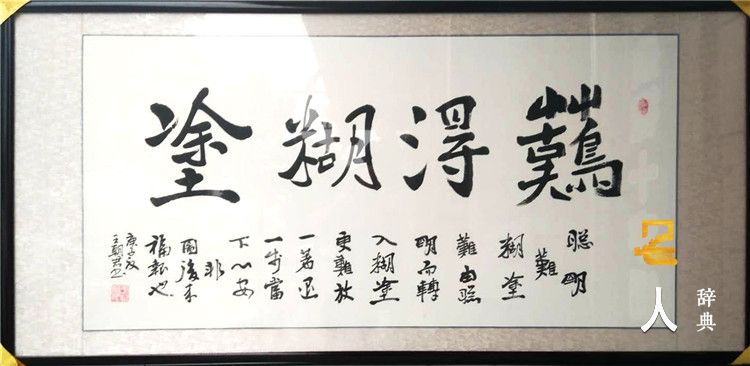 難得糊塗
聪明
難
糊塗
難由聪
明而轉
入糊塗
更難放
一著退
一步當
下心安
非
圖後来
福報也
庚子
王朝
名人
辞典